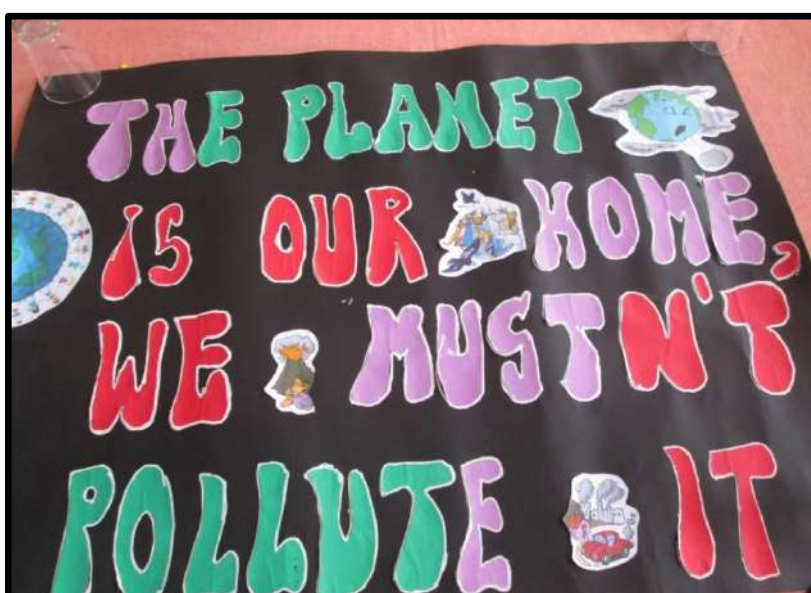 THE PLANET
iS OUR HOME,
WE MUSTN'T
POLLUTE IT